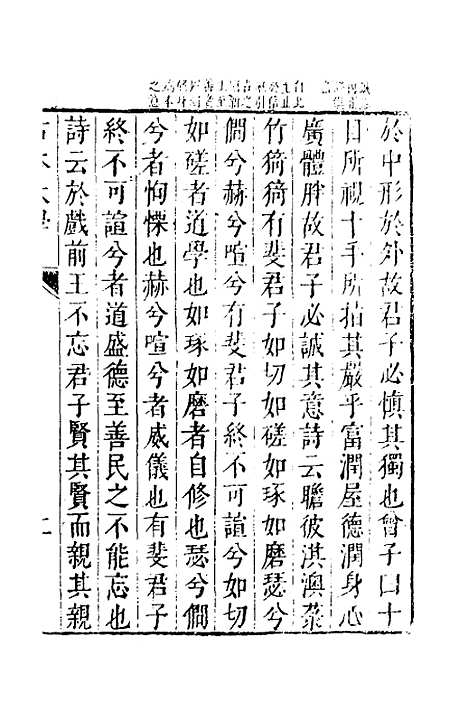 於中形於外故君子必慎其獨也曾子曰十
目所視十手所指其嚴乎富潤屋德潤身心
廣體胖故君子必誠其意詩云瞻彼淇澳菉
竹猗猗有斐君子如切如磋如琢如磨瑟兮
僩兮赫兮喧兮有斐君子終不可諠兮如切
如磋者道學也如琢如磨者自修也瑟兮僩
兮者恂慄也赫兮喧兮者威儀也有斐君子
終不可諠兮者道盛德至善民之不能忘也
詩云於戲前王不忘君子賢其賢而親其親
古本大學
二